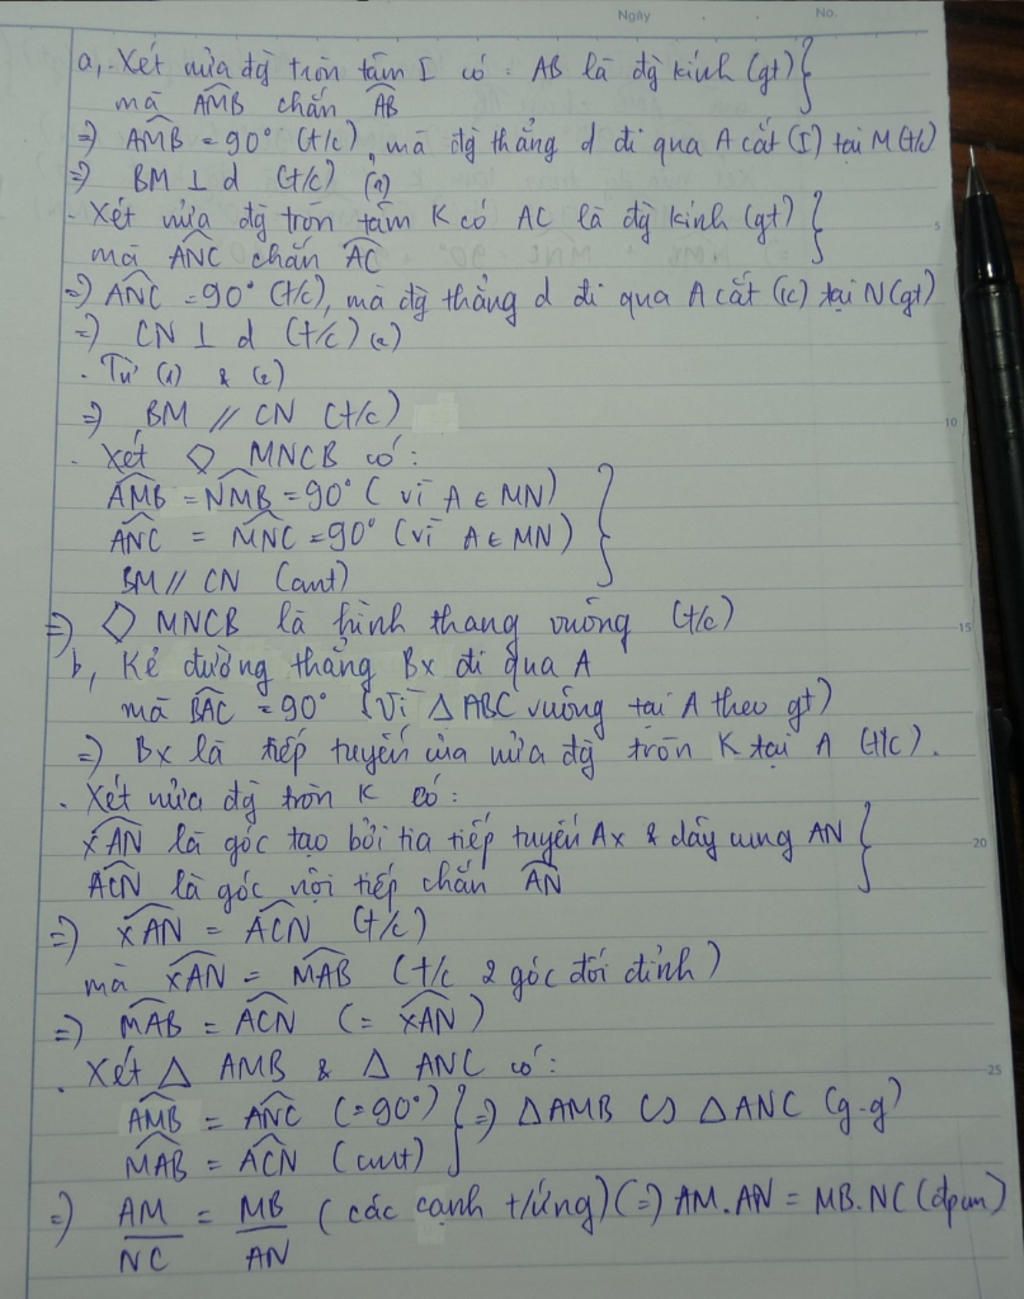 Ngày No.
a, - Xét nửa đg tròn tâm I có : AB là đg kính (gt) }
mà AMB chắn AB
=) AMB = 90° (t/c), mà đg thẳng d đi qua A cắt (I) tại M (t/c)
=) BM ⊥ d (t/c) (1)
- Xét nửa đg tròn tâm K có AC là đg kính (gt) }
mà ANC chắn AC 5
=) ANC = 90° (t/c), mà đg thẳng d đi qua A cắt (K) tại N (gt)
=) CN ⊥ d (t/c) (2)
. Từ (1) & (2)
=) BM // CN (t/c) 10
. Xét ◇ MNCB có :
AMB = NMB = 90° ( vì A ∈ MN) }
ANC = MNC = 90° (vì A ∈ MN)
BM // CN (cmt)
=) ◇ MNCB là hình thang vuông (t/c) 15
b, Kẻ đường thẳng Bx đi qua A
mà BAC = 90° (vì △ ABC vuông tại A theo gt)
=) Bx là tiếp tuyến của nửa đg tròn K tại A (t/c).
. Xét nửa đg tròn K có :
xAN là góc tạo bởi tia tiếp tuyến Ax & dây cung AN } 20
ACN là góc nội tiếp chắn AN
=) xAN = ACN (t/c)
mà xAN = MAB (t/c 2 góc đối đỉnh)
=) MAB = ACN (= xAN)
. Xét △ AMB & △ ANC có : 25
AMB = ANC (= 90°) } =) △ AMB ∽ △ ANC (g-g)
MAB = ACN (cmt)
=) AM/NC = MB/AN ( các cạnh t/ứng) (=) AM. AN = MB. NC (đpcm)